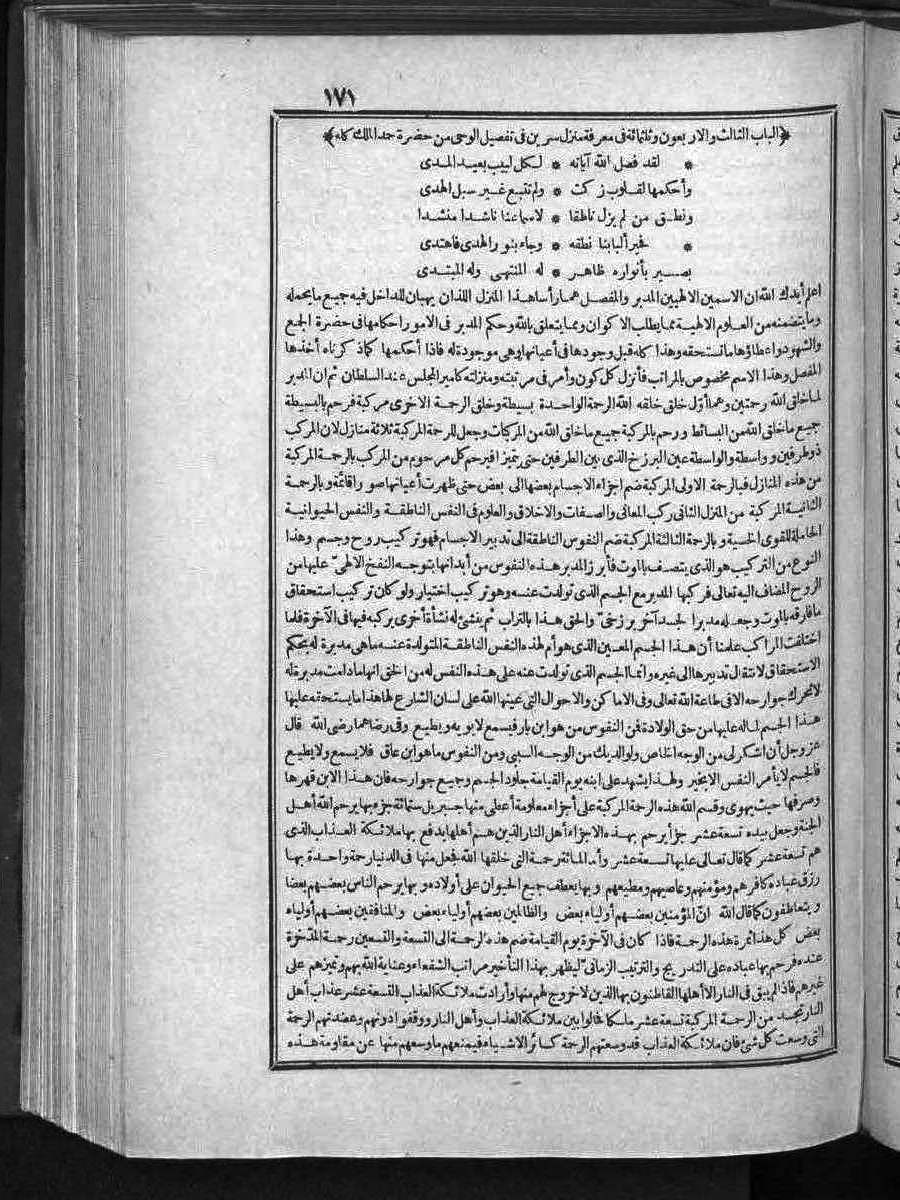 ١٧١
﴿الباب الثالث والاربعون وثلثمائة فى معرفة منزل سرين فى تفصيل الوحى من حضرة حمد الملك كله﴾
* لقد فصل الله آياته * لكل لبيب بعيد المدى
وأحكمها لقلوب زكت * ولم تتبع غير سبل الهدى
ونطق من لم يزل ناطقا * لاسماعنا ناشدا منشدا
* فحير ألبابنا نطقه * وجاء بنور الهدى فاهتدى
بصير بأنواره ظاهر * له المنتهى وله المبتدى
اعلم أيدك الله ان الاسمين الالهيين المدبر والمفصل هما رأسا هذا المنزل اللذان يهبان للداخل فيه جميع ما يحمله
وما يتضمنه من العلوم الالهية مما يطلب الاكوان ومما يتعلق بالله وحكم المدبر فى الامور احكامها فى حضرة الجمع
والشهود واعطاؤها ما تستحقه وهذا كله قبل وجودها فى أعيانها وهى موجودة له فاذا أحكمها كما ذكرناه أخذها
المفصل وهذا الاسم مخصوص بالمراتب فأنزل كل كون وأمر فى مرتبته ومنزلته كامير المجلس عند السلطان ثم ان المدبر
لما خلق الله رحمتين وهما أول خلق خلقه الله الرحمة الواحدة بسيطة وخلق الرحمة الاخرى مركبة فرحم بالبسيطة
جميع ما خلق الله من البسائط ورحم بالمركبة جميع ما خلق الله من المركبات وجعل للرحمة المركبة ثلاثة منازل لان المركب
ذو طرفين وواسطة والواسطة عين البرزخ الذى بين الطرفين حتى تميزا فيرحم كل مرحوم من المركب بالرحمة المركبة
من هذه المنازل فبالرحمة الاولى المركبة ضم اجزاء الاجسام بعضها الى بعض حتى ظهرت أعيانها صورا قائمة وبالرحمة
الثانية المركبة من المنزل الثانى ركب المعانى والصفات والاخلاق والعلوم فى النفس الناطقة والنفس الحيوانية
الحاملة للقوى الحسية وبالرحمة الثالثة المركبة ضم النفوس الناطقة الى تدبير الاجسام فهو تركيب روح وجسم وهذا
النوع من التركيب هو الذى يتصف بالموت فأبرز المدبر هذه النفوس من أبدانها بتوجه النفخ الالهىّ عليها من
الروح المضاف اليه تعالى فركبها المدبر مع الجسم الذى تولدت عنه وهو تركيب اختيار ولو كان تركيب استحقاق
ما فارقه بالموت وجعله مدبرا لجسد آخر برزخىّ وألحق هذا بالتراب ثم ينشئ له نشأة أخرى يركبه فيها فى الآخرة فلما
اختلفت المراكب علمنا أن هذا الجسم المعين الذى هو أم لهذه النفس الناطقة المتولدة عنه ما هى مدبرة له بحكم
الاستحقاق لانتقال تدبيرها الى غيره وانما الجسم الذى تولدت عنه على هذه النفس له من الحق انها ما دامت مدبرة له
لا تحرك جوارحه الا فى طاعة الله تعالى وفى الاماكن والاحوال التى عينها الله على لسان الشارع لها هذا ما يستحقه عليها
هذا الجسم لما له عليها من حق الولادة فمن النفوس من هو ابن بار فيسمع لابويه ويطيع وفى رضاهما رضى الله قال
عز وجل أن اشكر لى من الوجه الخاص ولوالديك من الوجه السببى ومن النفوس ما هو ابن عاق فلا يسمع ولا يطيع
فالجسم لا يأمر النفس الا بخير ولهذا يشهد على ابنه يوم القيامة جلود الجسم وجميع جوارحه فان هذا الابن قهرها
وصرفها حيث يهوى وقسم الله هذه الرحمة المركبة على أجزاء معلومة أعطى منها جبريل ستمائة جزء بها يرحم الله أهل
الجنة وجعل بيده تسعة عشر جزأ يرحم بهذه الاجزاء أهل النار الذين هم أهلها يدفع بها ملائكة العذاب الذى
هم تسعة عشر كما قال تعالى عليها تسعة عشر وأما المائة رحمة التى خلقها الله فجعل منها فى الدنيا رحمة واحدة بها
رزق عباده كافرهم ومؤمنهم وعاصيهم ومطيعهم وبها يعطف جميع الحيوان على أولاده وبها يرحم الناس بعضهم بعضا
ويتعاطفون كما قال الله انّ المؤمنين بعضهم أولياء بعض والظالمين بعضهم أولياء بعض والمنافقين بعضهم أولياء
بعض كل هذا ثمرة هذه الرحمة فاذا كان فى الآخرة يوم القيامة ضم هذه الرحمة الى التسعة والتسعين رحمة المدّخرة
عنده فرحم بها عباده على التدريج والترتيب الزمانى ليظهر بهذا التأخير مراتب الشفعاء وعناية الله بهم وتميزهم على
غيرهم فاذا لم يبق فى النار الا أهلها القاطنون بها الذين لا خروج لهم منها وأرادت ملائكة العذاب التسعة عشر عذاب أهل
النار تجسد من الرحمة المركبة تسعة عشر ملكا فحالوا بين ملائكة العذاب وأهل النار ووقفوا دونهم وعضدتهم الرحمة
التى وسعت كل شئ فان ملائكة العذاب قد وسعتهم الرحمة كسائر الاشياء فيمنعهم ما وسعهم منها عن مقاومة هذه